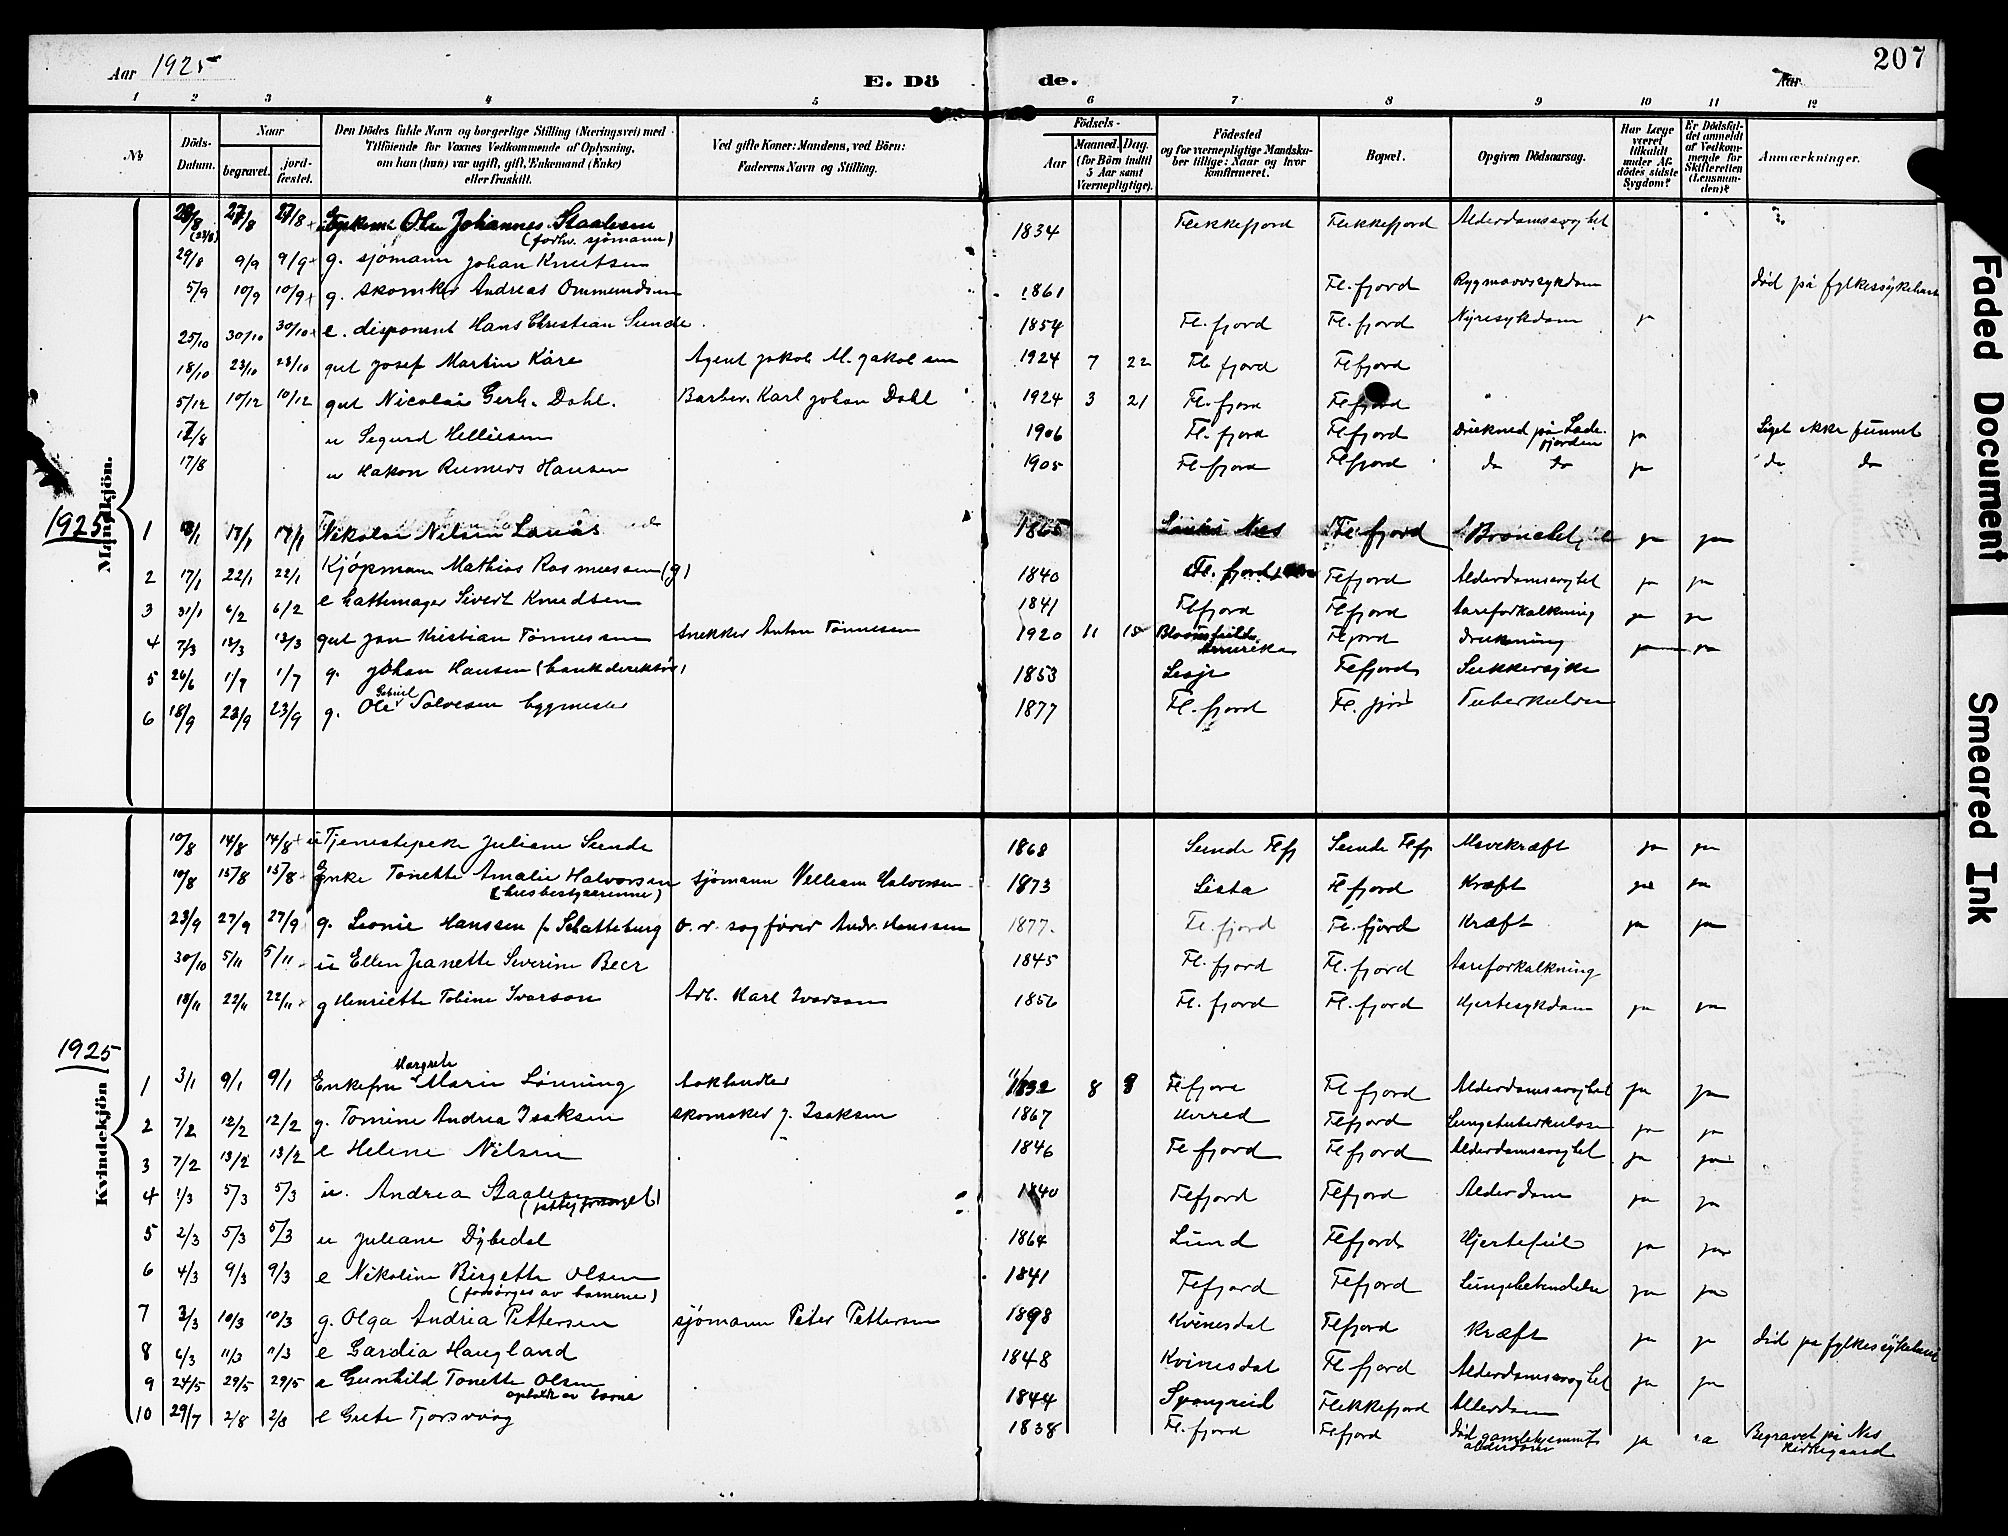 207
Aar 1925
E. Dö
de.
Aar
1 2 3 4 5 6 7 8 9 10 11 12
No
Döds-Datum.
Naar
begravet.
jord-fæstet.
Den Dödes fulde Navn og borgerlige Stilling (Næringsvei) med
Tilföiende for Voxnes Vedkommende af Oplysning,
om han (hun) var ugift, gift, Enkemand (Enke)
eller fraskilt.
Ved gifte Koner: Mandens, ved Börn:
Faderens Navn og Stilling.
Födsels-
Aar
Maaned. Dag.
(for Börn indtil
5 Aar samt
Værnepligtige).
Födested
og for værnepligtige Mandska-
ber tillige: Naar og hvor
konfirmeret.
Bopæl.
Opgiven Dödsaarsag.
Har Læge
været
tilkaldt
under Af-
dödes sidste
Sygdom?
Er Dödsfal-
det anmeldt
af Vedkom-
mende for
Skifteretten
(Lensman-
den)?
Anmærkninger.
Mandkjön.
27/8 27/8 Ole Johannes Staalesen 1834 Flekkefjord Flekkefjord Alderdomssvaghet
(forhv. sjömann)
29/8 9/9 9/9 g. sjömann Johan Knutsen
5/9 10/9 10/9 g. skomker Andreas Ommundsen 1861 Fl. fjord Rygmarvssykdom Död på fylkessykehus
25/10 30/10 30/10 e. disponent Hans Christian Sunde 1854 Fl. fjord Fl. fjord Nyresykdom ja
18/10 23/10 23/10 gut Josef Martin Kåre Agent Jakob M. Jakobsen 1924 7 22 Fl fjord Flfjord
5/12 10/12 10/12 gut Nicolai Gerh. Dahl. Barber. Karl Johan Dahl 1924 3 21 Fl. fjord Flfjord
17/8 u Sigurd Helliesen 1906 Fl. fjord Flfjord Druknet på Lade-fjorden ja Liget ikke funnet
17/8 u Hakon Reimers Hansen 1905 Fl fjord Flfjord do do ja do do
1925
1 Nikolai Nilsen Lonås 1865 Nes Fl fjord ja ja
2 17/1 22/1 22/1 Kjöpmann Mathias Rasmussen (g) 1840 Fl. fjord Flfjord Alderdomssvaghet ja ja
3 31/1 6/2 6/2 e hattemager Sivert Knudsen 1841 Flfjord Flfjord Aareforkalkning ja ja
4 7/3 13/3 13/3 gut Jon Kristian Tönnessen Snekker Anton Tönnesen 1920 11 15 Bloomfield Amerika Flfjord drukning ja ja
5 26/6 1/7 1/7 g. Johan Hansen (bankdirektör) 1853 Lesje Flfjord Sukkersyke
6 18/9 23/9 23/9 g. Ole Gabriel Salvesen byggmester 1877 Fl. fjord Fl. fjord Tuberkulose
Kvindekjön
10/8 14/8 14/8 u Tjenestepike Juliane Sunde 1868 Sunde Flfj Sunde Flfj Mavekræft ja ja
10/8 15/8 15/8 Enke Tonette Amalie Halvorsen sjömann Velleam Halvorsen 1873 Lista Flfjord Kræft ja ja
(husbestyrerinne)
23/9 27/9 27/9 g. Leonie Hanssen f. Schatteburg o. r. sagförer Andr. Hanssen 1877. Fl. fjord Fl. fjord Kræft ja ja
30/10 5/11 5/11 u Ellen Jeanette Severine Beer 1845 Fl. fjord Fl. fjord Aareforkalkning
18/11 22/11 22/11 g Henriette Tobine Ivarson Arb. Karl Ivarson 1856 Fl. fjord Fl. fjord Hjertesykdom ja ja
1925
1 3/1 9/1 9/1 Enkefru Margrete Marie Lönning 1832 8 8 Flfjord Fl fjord Alderdomssvaghet ja ja
2 7/2 12/2 12/2 g. Tomine Andrea Isaksen skomaker J. Isaksen 1867 Herred Flfjord Lungetuberkulose ja ja
3 7/2 13/2 13/2 e Helene Nilsen 1846 Flfjord Flfjord Alderdomssvaghet ja ja
4 1/3 5/3 5/3 u. Andrea Staalesen 1840 Flfjord Flfjord Alderdom ja ja
5 2/3 5/3 5/3 u Juliane Dybedal 1864 Lund Flfjord Hjertefeil ja ja
6 4/3 9/3 9/3 e Nikoline Birgette Olsen 1841 Flfjord Flfjord Lungebetendelse ja ja
(forsörges av barnene)
7 3/3 10/3 10/3 g. Olga Andrea Pettersen sjömann Peter Pettersen 1898 Kvinesdal Flfjord Kræft ja ja Död på fylkessykehus
8 6/3 11/3 11/3 e Gardia Haugland 1848 Kvinesdal Fl fjord Alderdomssvaghet ja ja
9 24/5 29/5 29/5 e Gunhild Tonette Olsen 1844 Spangreid Flekkefjord Alderdom
10 29/7 2/8 2/8 e Grete Tjorsvaag 1838 Fl. fjord Flfjord Död gamlehjemmet alderdom ja ja Begravet på Nes Kirkegaard
Faded Document
Smeared Ink